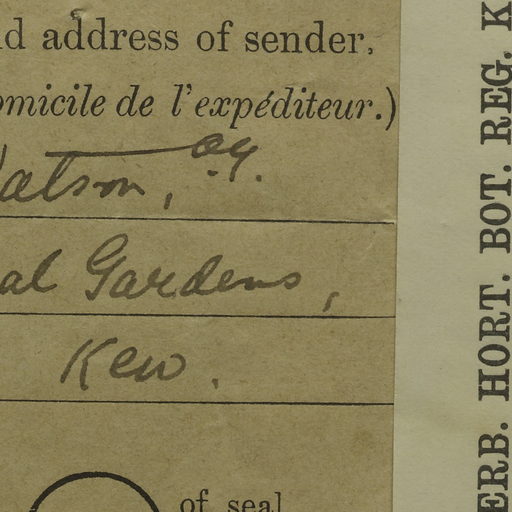 nd address of sender.
omicile de l'expéditeur.)
Watson,
al Gardens,
Kew.
of seal
ERB. HORT. BOT. REG. K